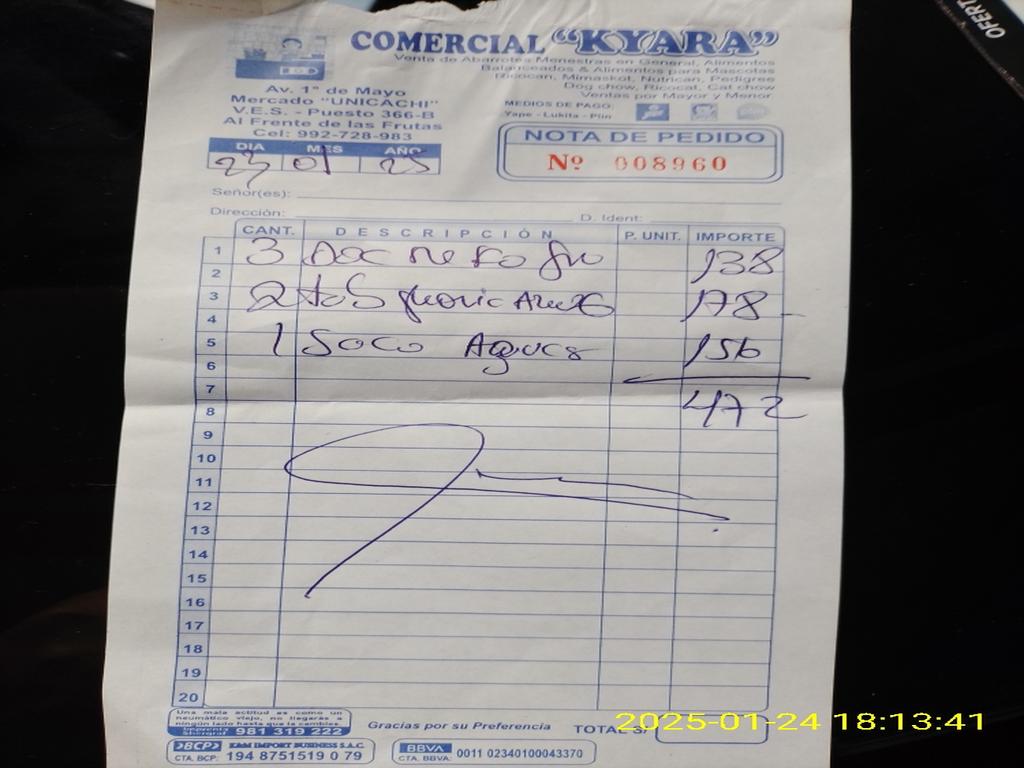 OFERT
COMERCIAL "KYARA"
Venta de Abarrotes Menestras en General, Alimentos
Balanceados & Alimentos para Mascotas
Ricocan, Mimaskot, Nutrican, Pedigree
Dog chow, Ricocat, Cat chow
Ventas por Mayor y Menor
Av. 1° de Mayo
Mercado "UNICACHI"
V.E.S. - Puesto 366-B
Al Frente de las Frutas
Cel: 992-728-983
MEDIOS DE PAGO:
Yape - Lukita - Plin
NOTA DE PEDIDO
Nº 008960
DIA MES AÑO
23 01 25
Señor(es):
Dirección: D. Ident:
CANT. DESCRIPCIÓN P. UNIT. IMPORTE
1 3 138
2
3 2 178
4
5 1 156
6
7
8 472
9
10
11
12
13
14
15
16
17
18
19
20
Una mala actitud es como un
neumático viejo, no llegarás a
ningún lado hasta que la cambies.
981 319 222
Gracias por su Preferencia TOTAL S/
BCP K&M IMPORT BUSINESS S.A.C.
CTA. BCP: 194 8751519 0 79
BBVA
CTA. BBVA: 0011 02340100043370
2025-01-24 18:13:41